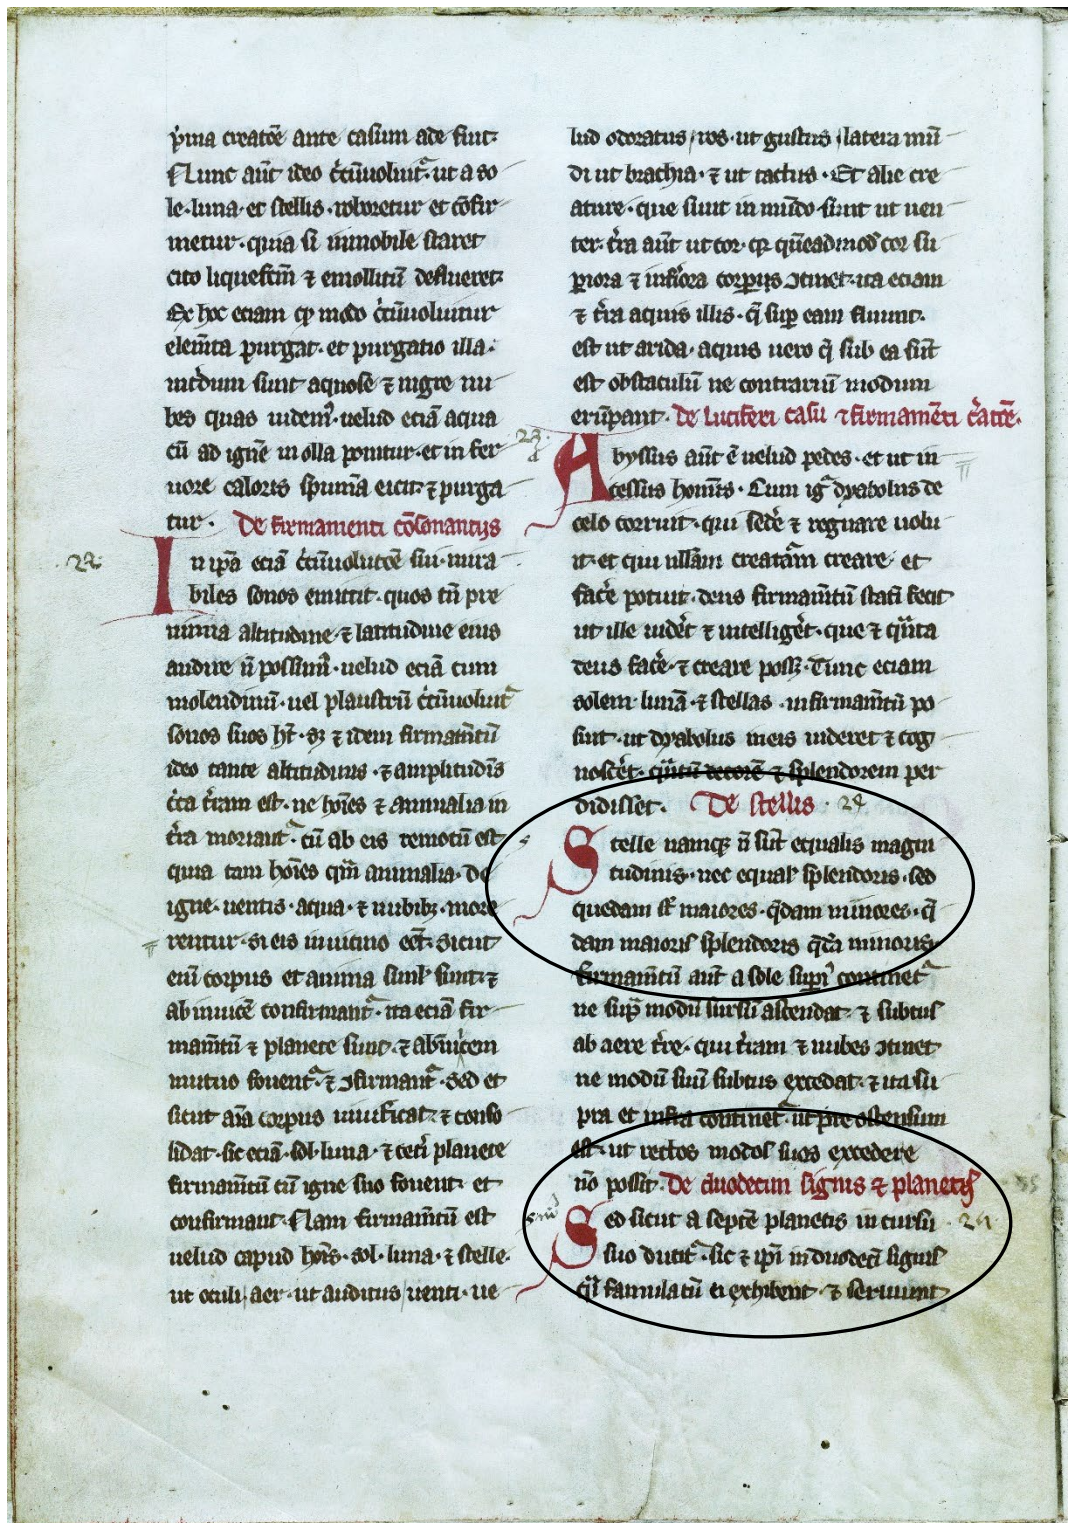 p̾ma creatōe ante casum ade fuit·
Nunc aūt ideo c̾cūuoluit᷑· ut a so
le·luna·et stellis·roboretur et cōfir
metur·quia si inmobile staret
cito liquefc̄m ⁊ emollitū deflueret·
Ex hoc eciam qꝫ modo c̾cūuoluitur
elem̄ta purgat·et purgatio illa·
int̾dum sunt aquose ⁊ nigre nu
bes quas uidem᷒·uelud eciā aqua
cū ad ignē in olla ponitur·et in fer
uore caloris spumā eicit·⁊ purga
tur· De firmamenti cōsonantijs
22·
In ip̄a eciā c̾cūuolutōe sui·mira
biles sonos emittit·quos tn̄ pre
nimia altitudine·⁊ latitudine eius
audire n̄ possum᷒·uelud eciā cum
molendinū·uel plaustrū c̾cūuoluit᷑
sonos suos hт̄·sꝫ ⁊ idem firmam̄tū
ideo tante altitudinis·⁊ amplitudīs
c̾ca t̾ram est·ne hoīes ⁊ animalia in
t̾ra moriant᷑·cū ab eis remotū est
quia tam hoīes qm̄ animalia·de
igne·uentis·aqua·⁊ nubibꝫ·more
rentur·si eis in uicino eēt·Sicut
eni corpus et anima siml̾ sunt·⁊
abinuicē confirmant᷑·ita eciā fir
mam̄tū ⁊ planete sunt·⁊ abinuicem
mutuo fouent᷑·⁊ ꝯfirmant᷑·Sed et
sicut aīa corpus uiuificat·⁊ conso
lidat·sic eciā·sol·luna·⁊ cet̾i planete
firmam̄tū cū igne suo fouent·et
confirmant·Nam firmam̄tū est
uelud capud hoīs·sol·luna·⁊ stelle·
ut oculi/aer·ut auditus/uenti·ue
lud odoratus/ros·ut gustus/latera mū
di ut brachia·⁊ ut tactus·Et alie cre
ature·que sunt in mūdo sunt ut uen
ter·t̾ra aūt ut cor·qꝫ quēadmod᷒ cor su
piora ⁊ infi̾ora corpꝰis ꝯtinet·ita eciam
⁊ t̾ra aquis illis·q̄ sup eam fluunt·
est ut arida·aquis uero q̄ sub ea sūt
est obstaculū ne contrariū modum
erūpant· De luciferi casu ⁊ firmamēti c̾atōe·
23·
Abyssus aūt ē uelud pedes·et ut in
cessus homīs·Cum ig̾ dyabolus de
celo corruit·qui sede̾ ⁊ regnare uolu
it·et qui nullam creatᷓam creare et
face̾ potuit·deus firmam̄tū stati fecit
ut ille uide̾t ⁊ intellige̾t·que ⁊ quāta
deus face̾·⁊ creare possꝫ·Tunc eciam
solem·lunā·⁊ stellas·in firmam̄tū po
suit·ut dyabolus in eis uideret ⁊ cog
nosce̾t·quātū decorē ⁊ splendorem per
didisset· De stellis· 24·
Stelle namqꝫ n̄ sūt equalis magni
tudinis·nec equal̾ splendoris·sed
quedam st̄ maiores·q̄dam minores·q̄
dam maioris splendoris q̄dā minoris·
firmam̄tū aūt a sole supi᷒ continet᷑
ne supᷓ modū sursū ascendat·⁊ subtus
ab aere t̾re·qui t̾ram ⁊ nubes ꝯtinet
ne modū suū subtus excedat·⁊ ita su
pra et infra continet᷑·ut pre ostensum
est·ut rectos modos suos excedere
nō possit· De duodecim signis ⁊ planetis
Sed sicut a septē planetis in cursu
suo ducit᷑·sic ⁊ ip̄i in duodecī signis
q̄ famulatū ei exhibent·⁊ seruiunt